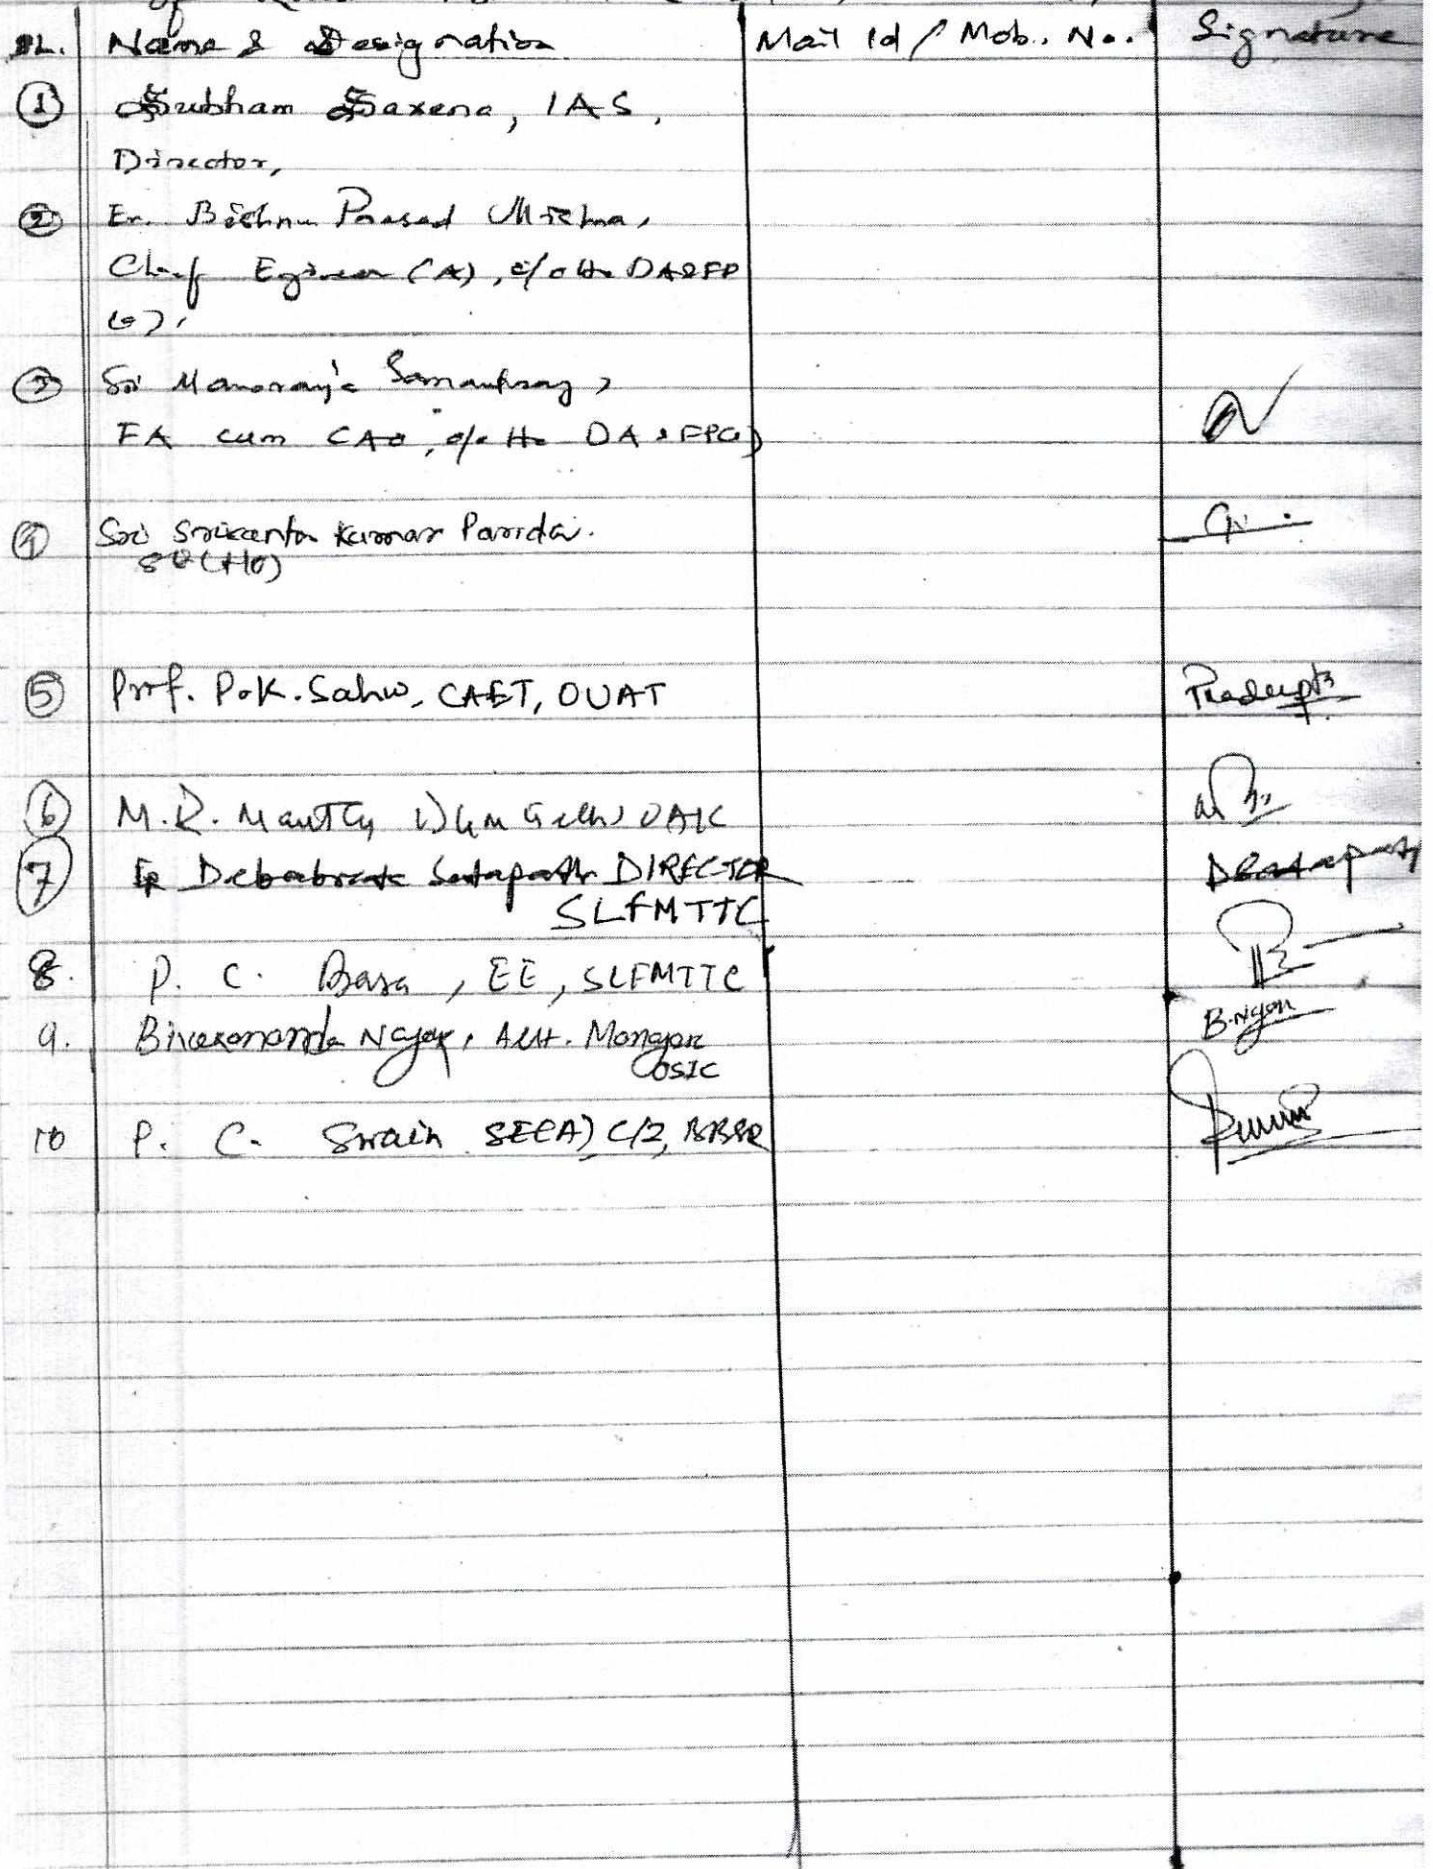 SL. Name & Designation Mail Id / Mob. No. Signature
① Subham Saxena, IAS,
Director,
② Er. Bishnu Prasad Mishra,
Chief Engineer (A), o/o the DA&FP
(O),
③ Sri Manoranjan Samantray,
FA cum CAO, o/o the DA&FP(O)
④ Sri Srikanta Kumar Parida.
(HO)
⑤ Prof. P.K. Sahu, CAET, OUAT
⑥ M.R.
⑦ Er Debabrata Satapathy DIRECTOR
SLFMTTC
8. P. C. Basa, EE, SLFMTTC
9. Nayak, Manager B.Nayak
OSIC
10 P. C. Swain SE(A) C/Z, BBSR